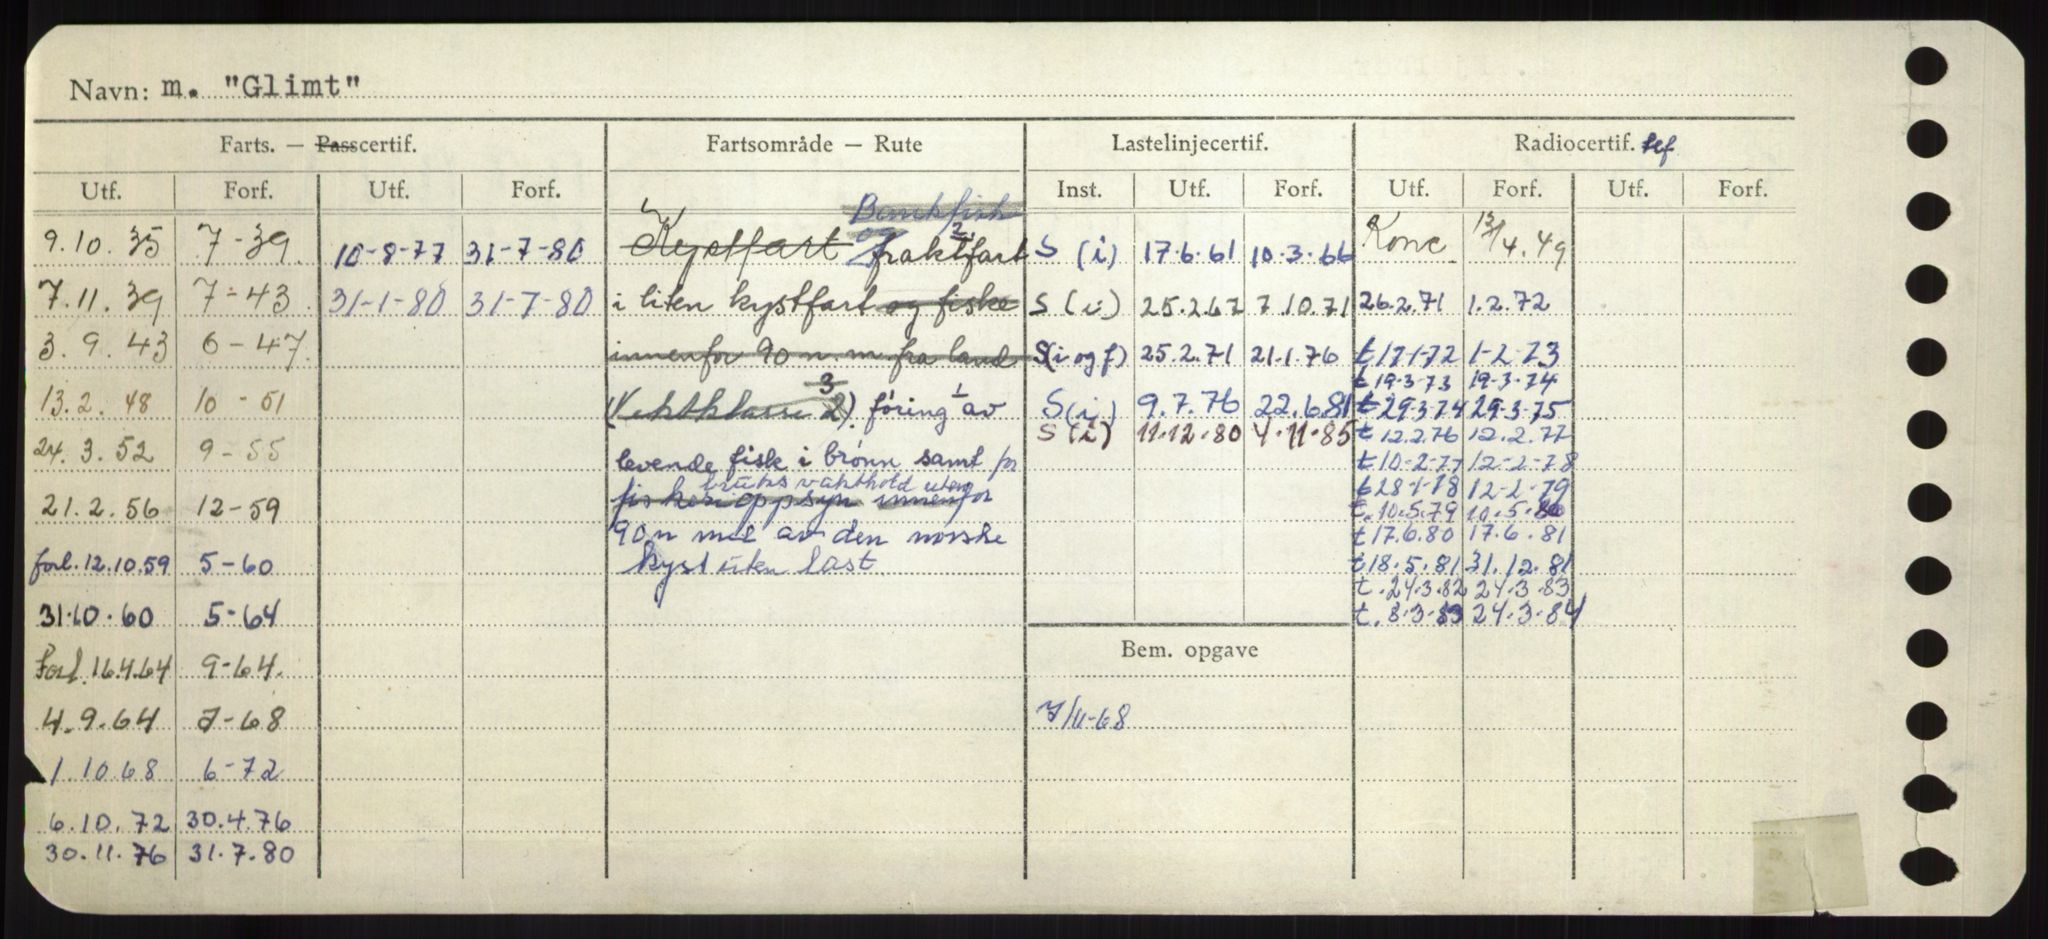 Navn: m. "Glimt"
Farts. — Passcertif. Fartsområde — Rute Lastelinjecertif. Radiocertif. tlf
Utf. Forf. Utf. Forf. Inst. Utf. Forf. Utf. Forf. Utf. Forf.
9.10.35 7-39
7.11.39 7-43
3.9.43 6-47
13.2.48 10-51
24.3.52 9-55
21.2.56 12-59
forl. 12.10.59 5-60
31.10.60 5-64
Forl. 16.4.64 9-64.
4.9.64 7-68
1.10.68 6-72
6.10.72 30.4.76
30.11.76 31.7.80
10-8-77 31-7-80
31-1-80 31-7-80
Bankfiske
Kystfart fraktfart
i liten kystfart og fiske
innenfor 90 n.m fra land
3
(Vektklasse 2). føring av
levende fisk i brønn samt for
bruks vakthold uten
fiskerioppsyn innenfor
90 n mil av den norske
kyst uten last
S (i) 17.6.61 10.3.66
S (i) 25.2.67 7.10.71
S (i og f) 25.2.71 21.1.76
S (i) 9.7.76 22.6.81
S (i) 11.12.80 4.11.85
Bem. opgave
7/11-68
Konc 12/4.49
26.2.71 1.2.72
t 17-1-72 1-2-73
t 19-3-73 19-3-74
t 29-3-74 29-3-75
t 12.2.76 12.2.77
t 10-2-77 12-2-78
t 28-1-78 12-2-79
t. 10.5.79 10.5.80
t 17.6.80 17.6.81
t 18.5.81 31.12.81
t. 24.3.82 24.3.83
t. 8.3.83 24.3.84